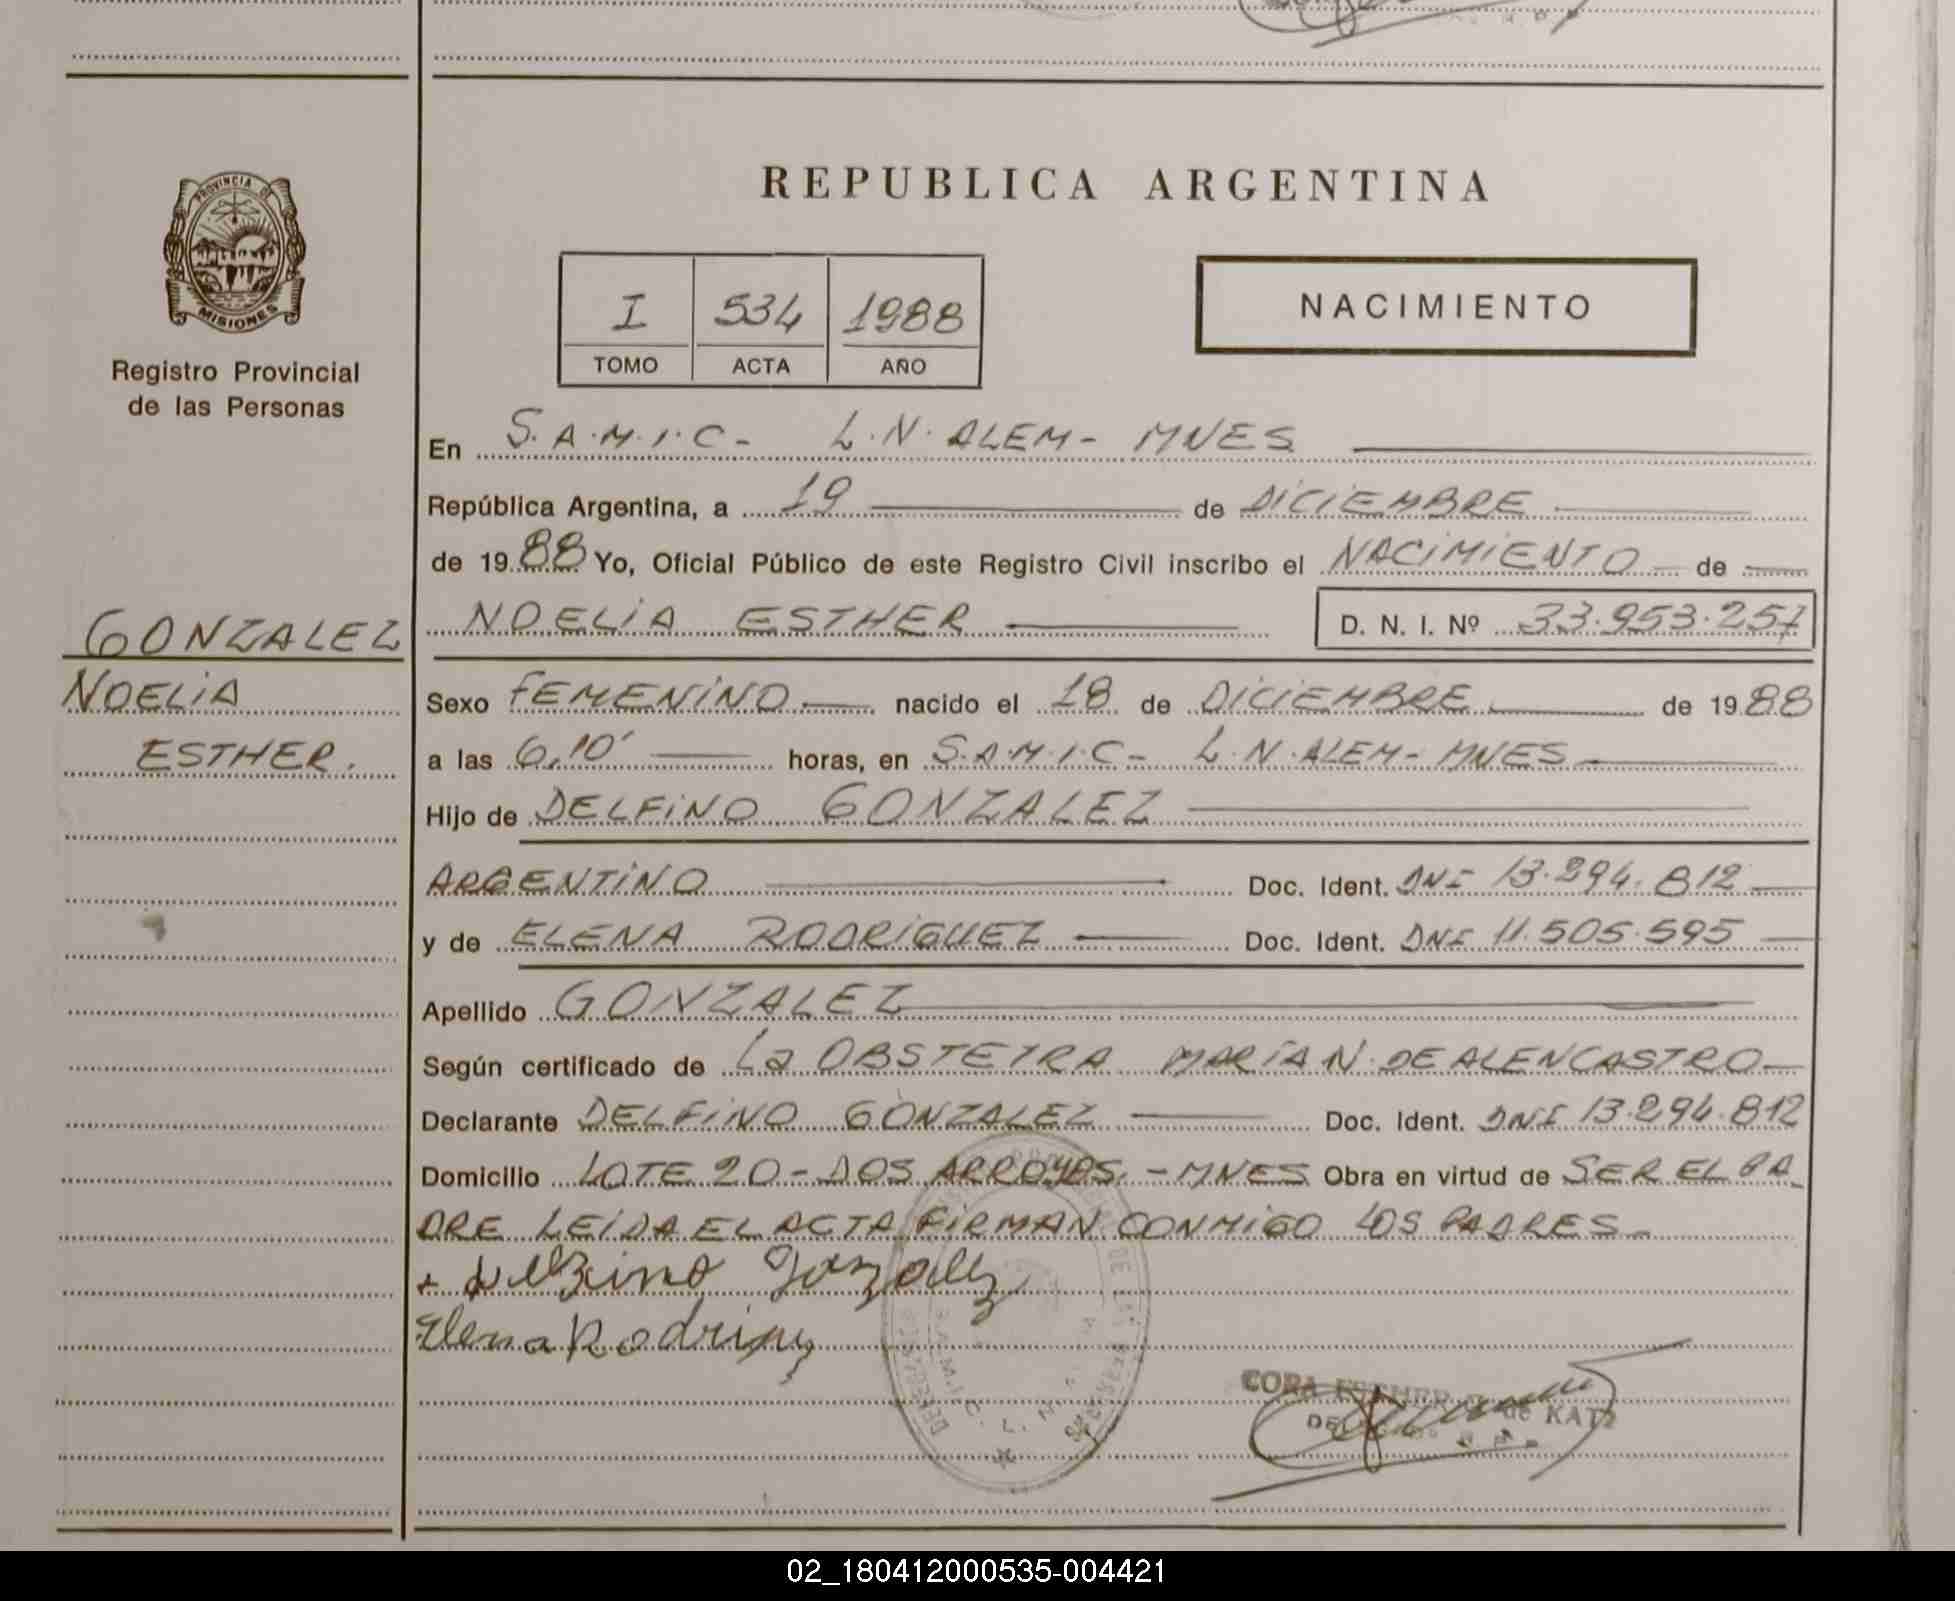 PROVINCIA DE
MISIONES
Registro Provincial
de las Personas
GONZALEZ
NOELIA
ESTHER.
REPUBLICA ARGENTINA
I 534 1988
TOMO ACTA AÑO
NACIMIENTO
En S.A.M.I.C- L.N.ALEM- MNES
República Argentina, a 19 de DICIEMBRE
de 1988 Yo, Oficial Público de este Registro Civil inscribo el NACIMIENTO de
NOELIA ESTHER D. N. I. Nº 33.953.257
Sexo FEMENINO nacido el 18 de DICIEMBRE de 1988
a las 6,10' horas, en S.A.M.I.C- L.N.ALEM- MNES
Hijo de DELFINO GONZALEZ
ARGENTINO Doc. Ident. DNI 13.294.812
y de ELENA RODRIGUEZ Doc. Ident. DNI 11.505.595
Apellido GONZALEZ
Según certificado de La OBSTETRA MARIA N. DE ALENCASTRO
Declarante DELFINO GONZALEZ Doc. Ident. DNI 13.294.812
Domicilio LOTE 20-DOS ARROYOS.-MNES Obra en virtud de SER EL PA
DRE LEIDA EL ACTA FIRMAN CONMIGO LOS PADRES-
Delfino Gonzalez
Elena Rodriguez
S.A.M.I.C. L.N.
CORA ESTHER de KATZ
02_180412000535-004421